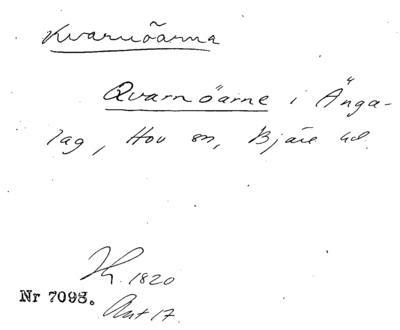 Kvarnöarna
Qvarnöarne i Änga-
lag, Hov sn, Bjäre hd.
1820
Nr 7098.
Akt 17.